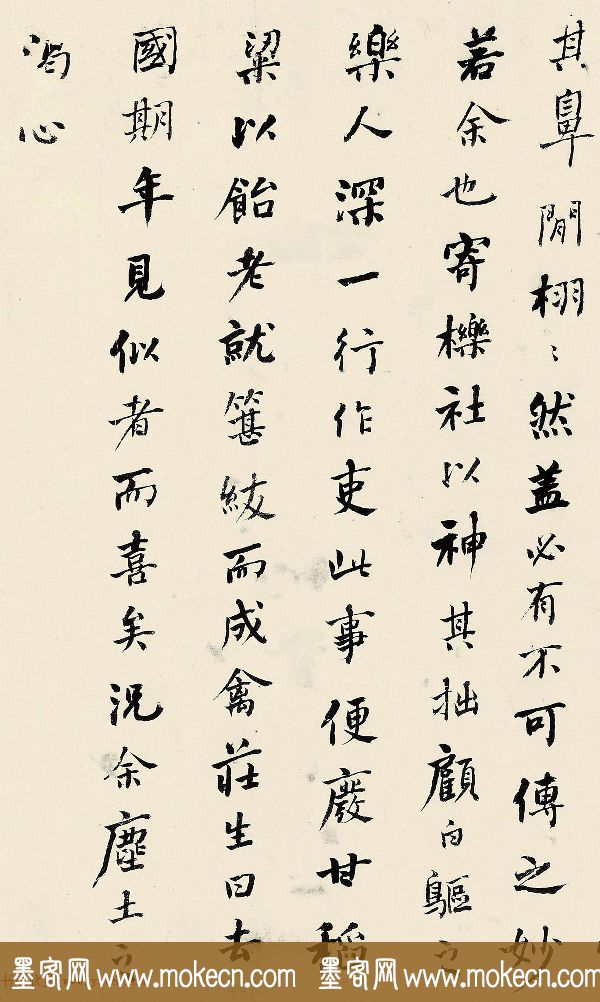 其鼻閒栩〻然蓋必有不可傳之妙
若余也寄櫟社以神其拙顧白鷗之
樂人深一行作吏此事便廢甘稻
粱以飴老就簪紱而成禽莊生曰去
國期年見似者而喜矣況余塵土之
渴心
墨客网 www.mokecn.com 墨客网 www.mokecn.com 墨客网 www.mokecn.com